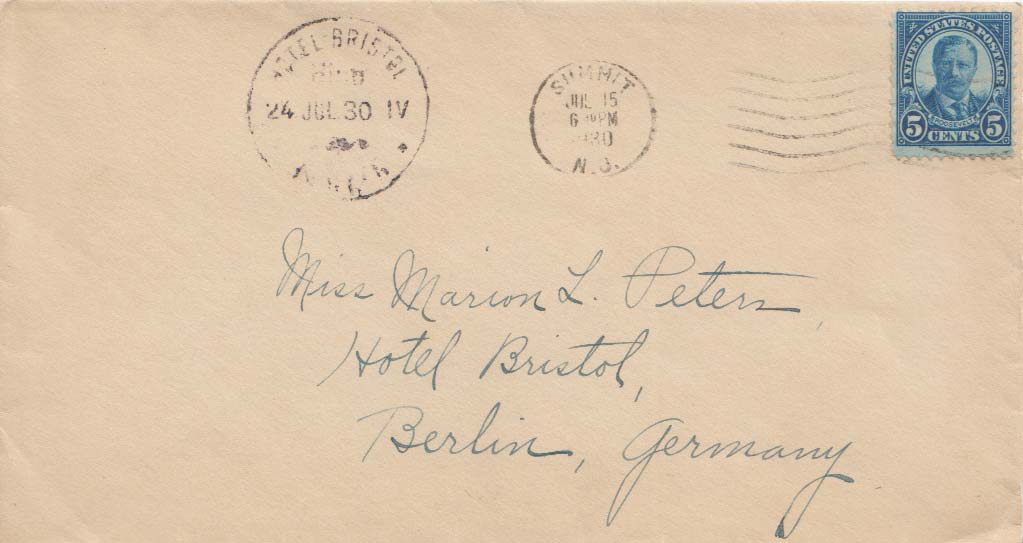 HOTEL BRISTOL
24 JUL 30 IV
SUMMIT
JUL 15
6 PM
N.J.
UNITED STATES POSTAGE
ROOSEVELT
5 CENTS 5
Miss Marion L. Peters,
Hotel Bristol,
Berlin, Germany